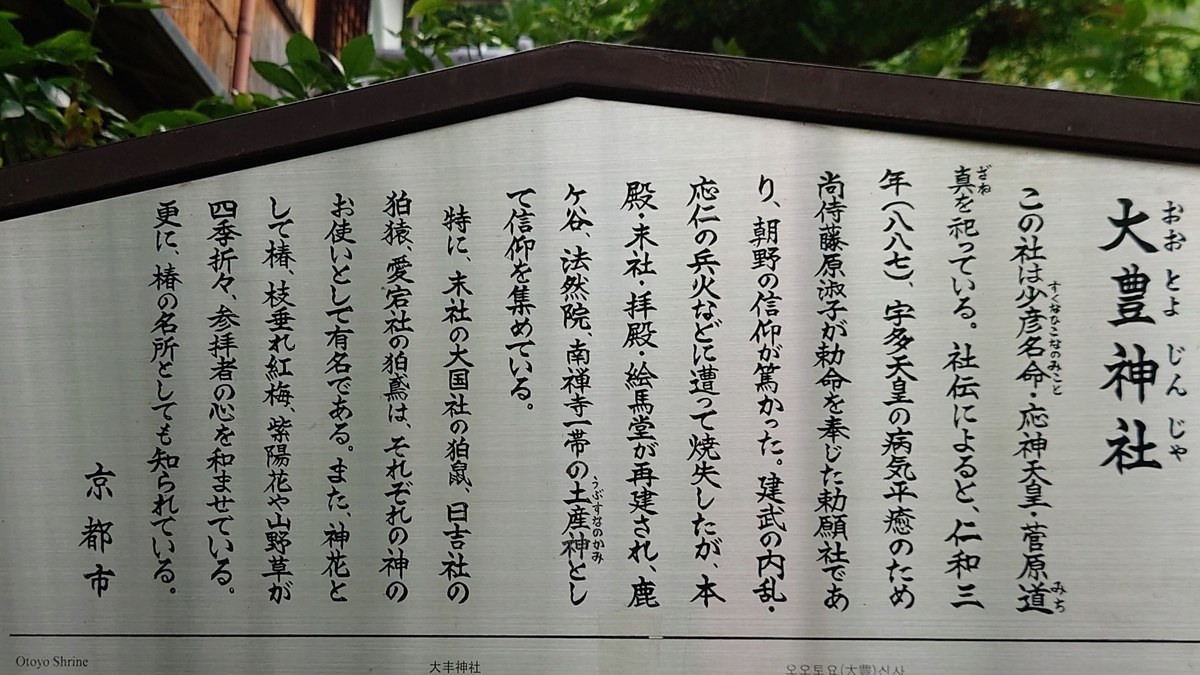 大豊神社
おおとよじんじゃ
この社は少彦名命・応神天皇・菅原道
すくなひこなのみこと
みち
真を祀っている。社伝によると、仁和三
ざね
年（八八七）、宇多天皇の病気平癒のため
尚侍藤原淑子が勅命を奉じた勅願社であ
り、朝野の信仰が篤かった。建武の内乱・
応仁の兵火などに遭って焼失したが、本
殿・末社・拝殿・絵馬堂が再建され、鹿
ケ谷、法然院、南禅寺一帯の土産神とし
うぶすなのかみ
て信仰を集めている。
特に、末社の大国社の狛鼠、日吉社の
狛猿、愛宕社の狛鳶は、それぞれの神の
お使いとして有名である。また、神花と
して椿、枝垂れ紅梅、紫陽花や山野草が
四季折々、参拝者の心を和ませている。
更に、椿の名所としても知られている。
京都市
Otoyo Shrine
大丰神社
오오토요(大豊)신사